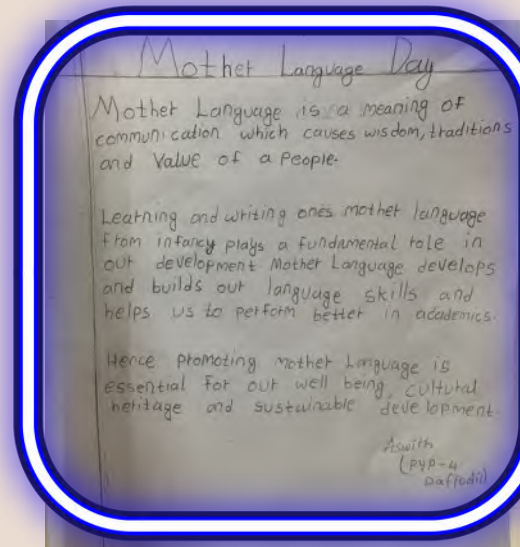 Mother Language Day
Mother Language is a meaning of
communication which causes wisdom, traditions
and Value of a People.
Learning and writing ones mother language
from infancy plays a fundamental role in
our development Mother Language develops
and builds our language skills and
helps us to perform better in academics.
Hence promoting Mother Language is
essential for our well being, cultural
heritage and sustainable development.
Aswith
(PYP-4
Daffodil)